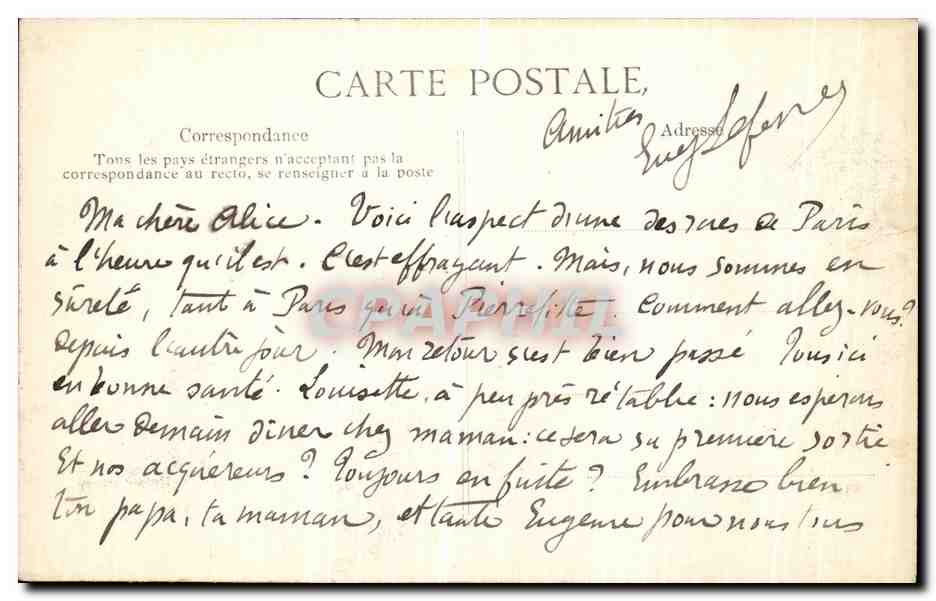 CARTE POSTALE,
Amitiés
Eug Lefevre
Correspondance
Adresse
Tous les pays étrangers n'acceptant pas la
correspondance au recto, se renseigner à la poste
Ma chère Alice. Voici l'aspect d'une des rues de Paris
à l'heure qu'il est. C'est effrayant. Mais, nous sommes en
sûreté, tant à Paris qu'à Pierrefitte. Comment allez-vous?
depuis l'autre jour. Mon retour s'est bien passé Tous ici
en bonne santé. Louisette, à peu près rétablie : nous espérons
aller demain dîner chez maman : ce sera sa première sortie
Et nos acquéreurs ? Toujours en fuite ? Embrasse bien
ton papa, ta maman, et tante Eugénie pour nous tous
CPAPHIL